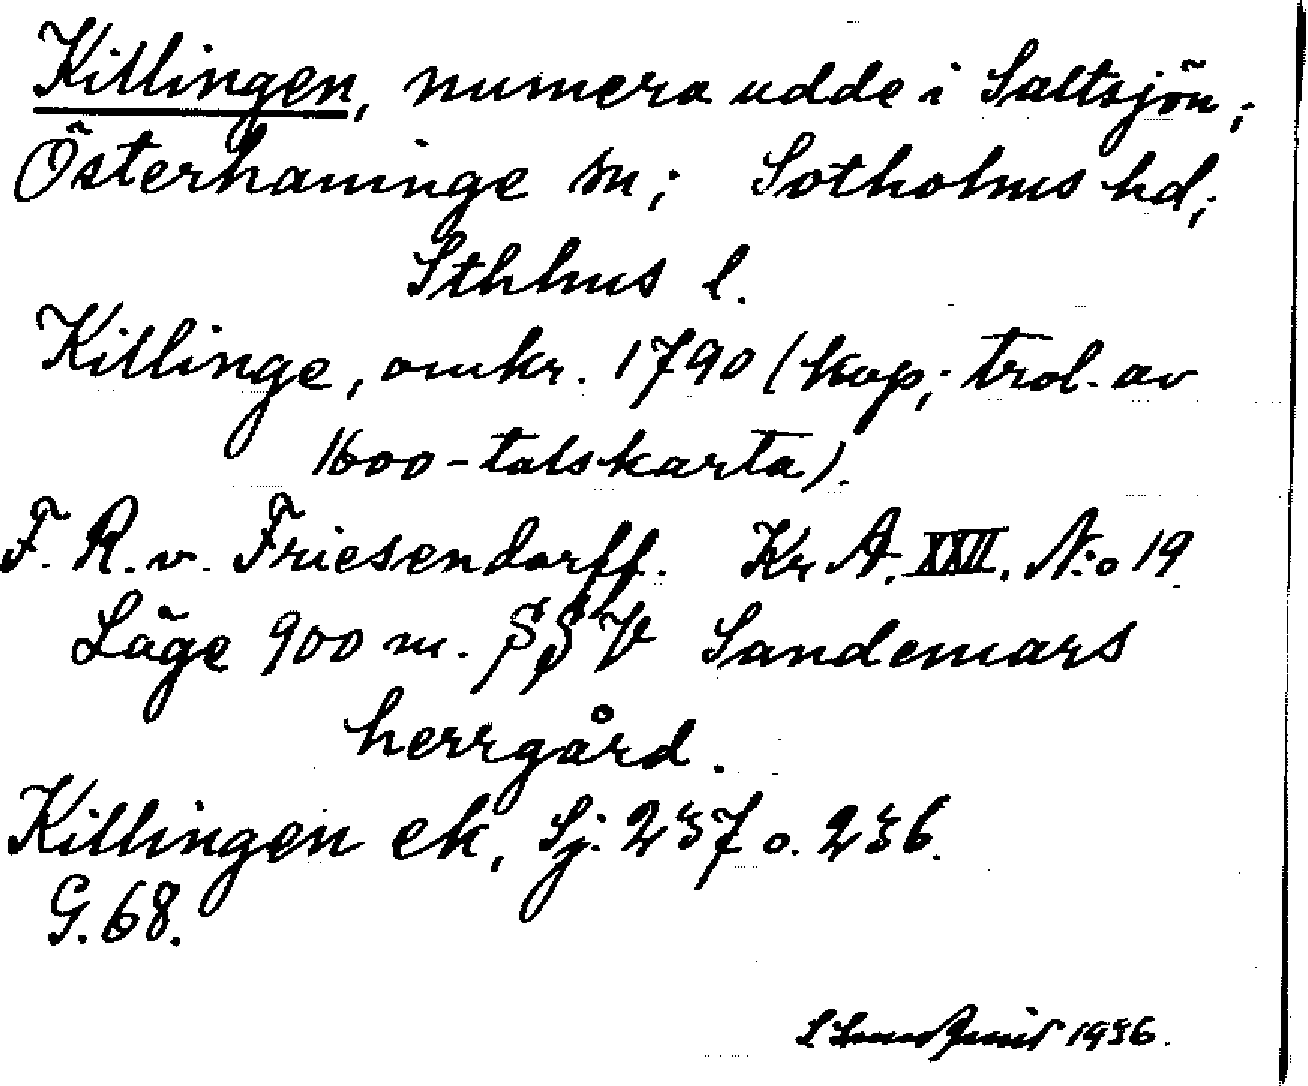 Killingen, numera udde i Saltsjön;
Österhaninge sn; Sotholms hd;
Sthlms l.
Killinge, omkr. 1790 (kop; trol. av
1600-talskarta).
F. R. v. Friesendorff. Kr A. XXII. N:o 19
Läge 900 m. SSV Sandemars
herrgård.
Killingen ek, Sj. 237 o. 236.
G. 68.
1936.